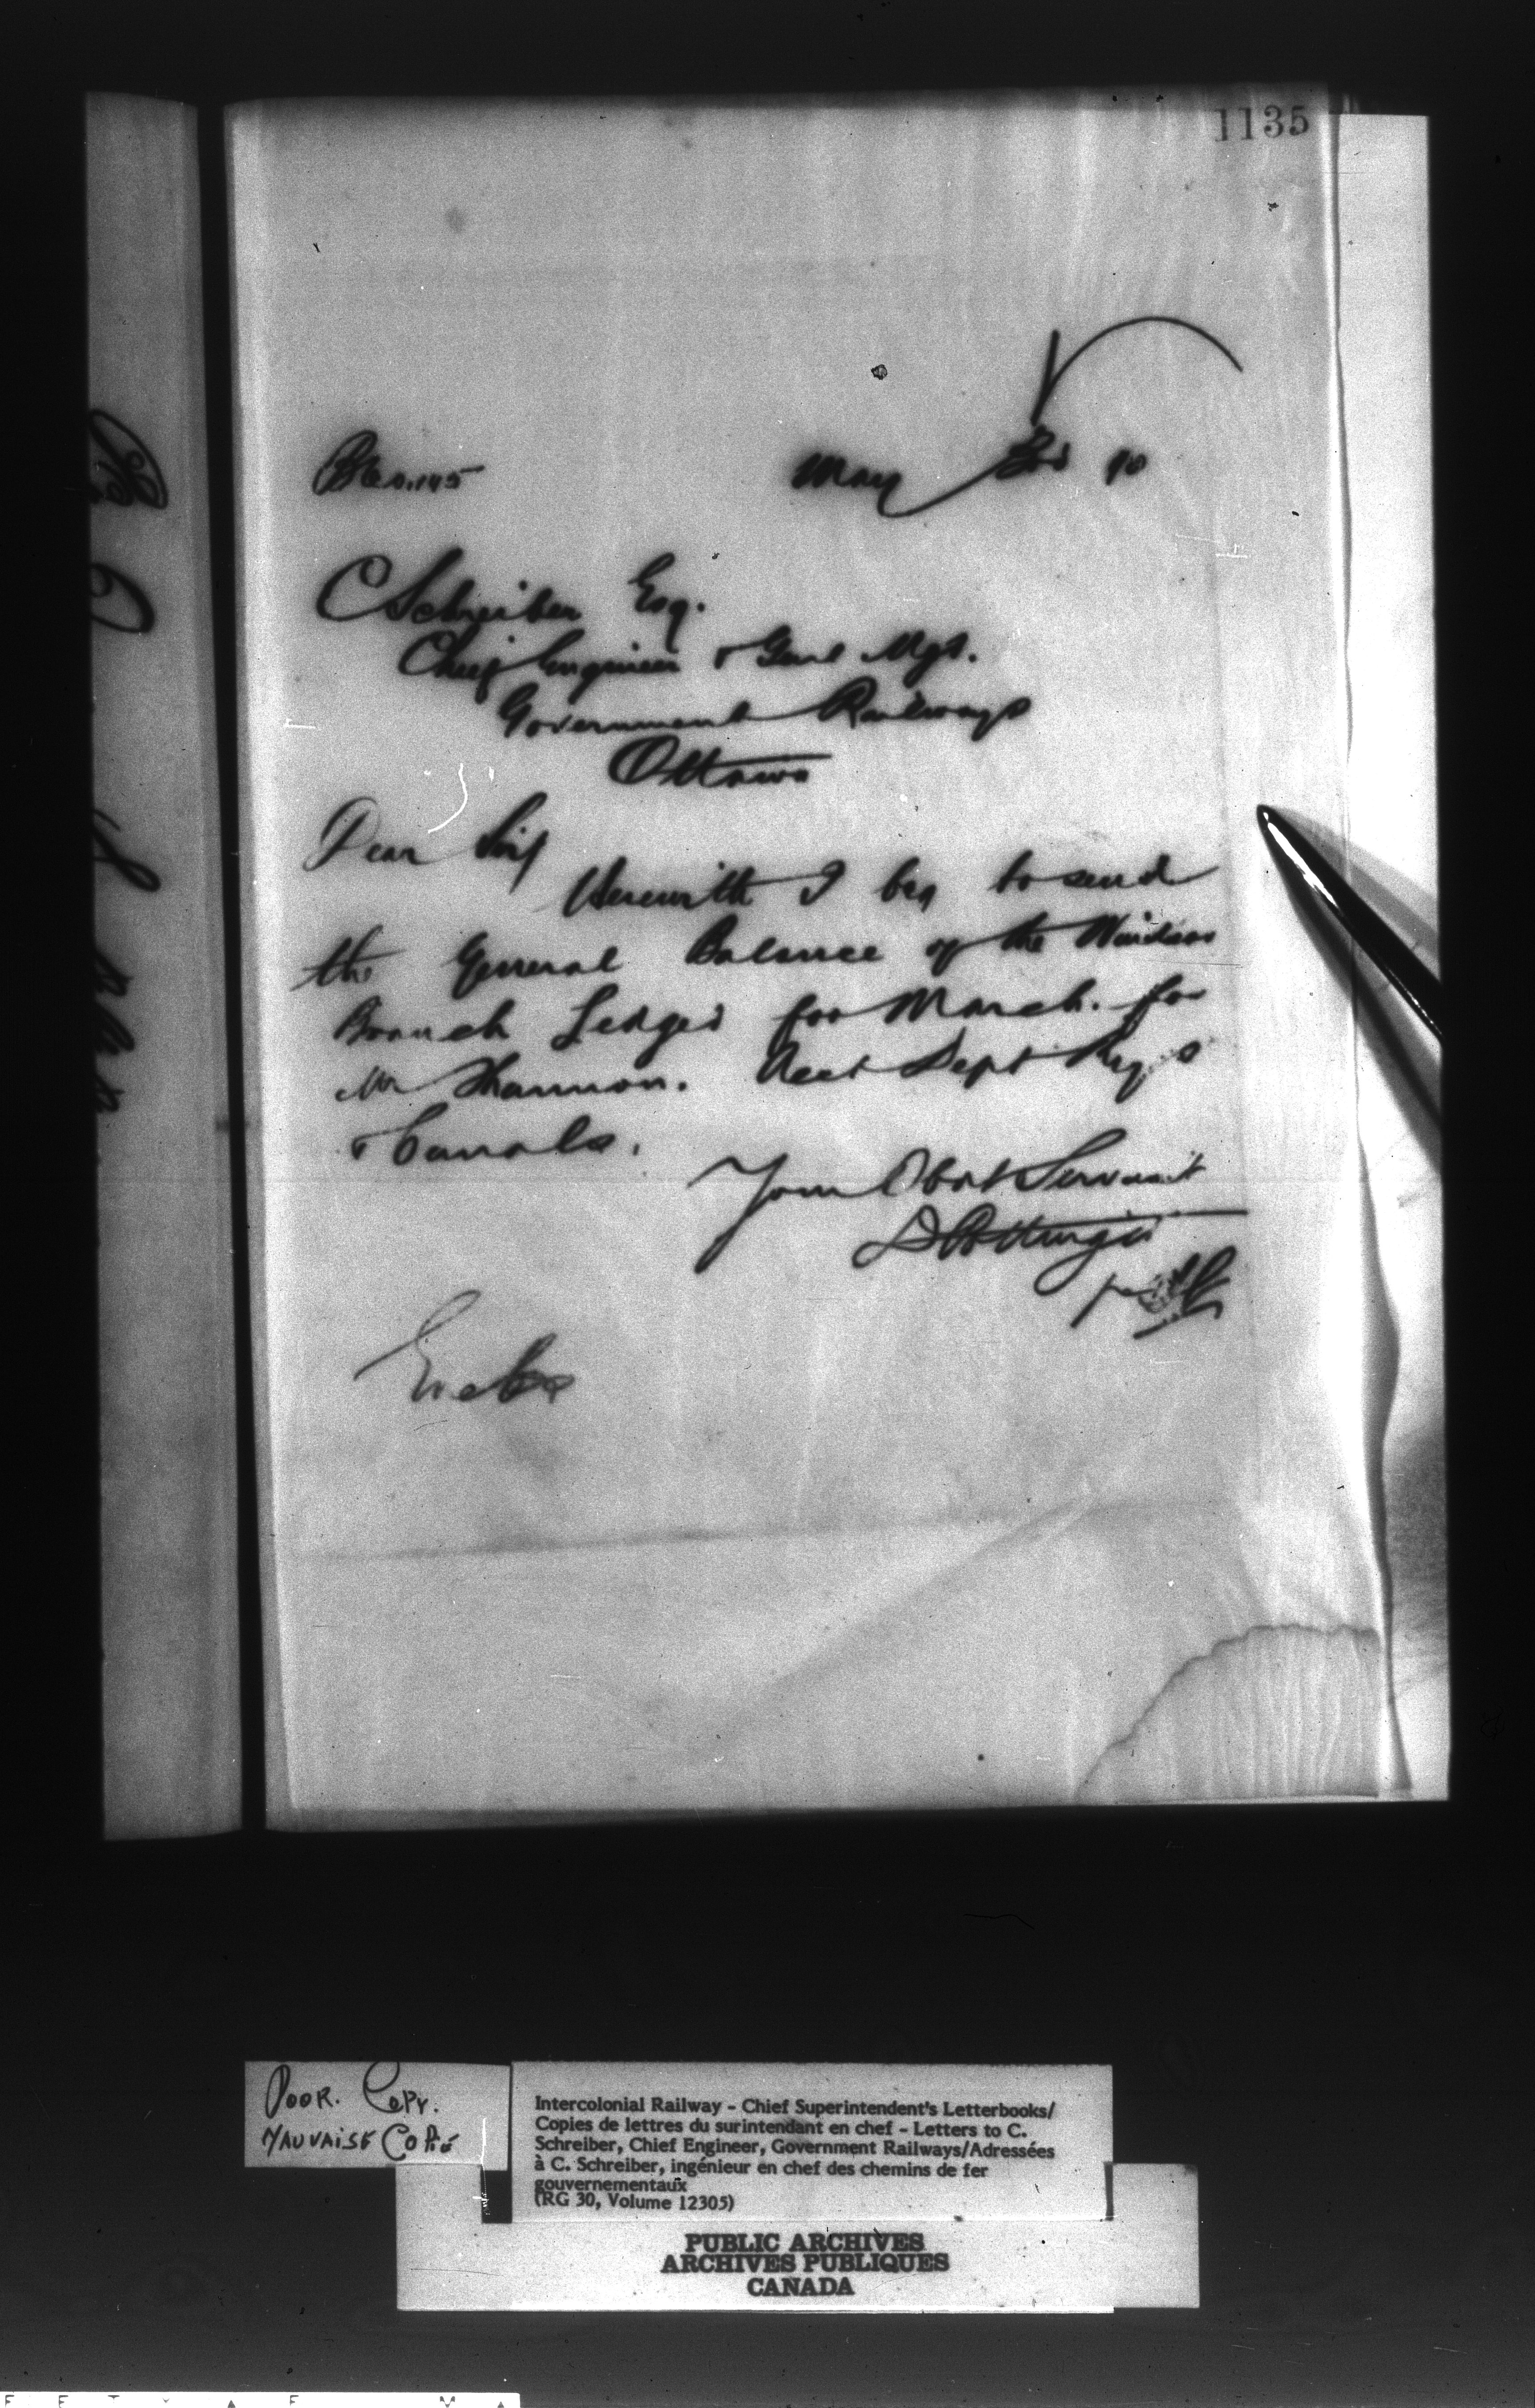 1135
May 3rd 90
C Schreiber Esq.
Chief Engineer & Genl Mgr.
Government Railways
Ottawa
Dear Sir
Herewith I beg to send
the General Balance of the Windsor
Branch Ledger for March. for
Mr Shannon. Acct Dept Rys
& Canals.
Your Obdt Servant
D Pottinger
per
Encls
POOR. COPY.
MAUVAISE COPIE
Intercolonial Railway - Chief Superintendent's Letterbooks/
Copies de lettres du surintendant en chef - Letters to C.
Schreiber, Chief Engineer, Government Railways/Adressées
à C. Schreiber, ingénieur en chef des chemins de fer
gouvernementaux
(RG 30, Volume 12305)
PUBLIC ARCHIVES
ARCHIVES PUBLIQUES
CANADA